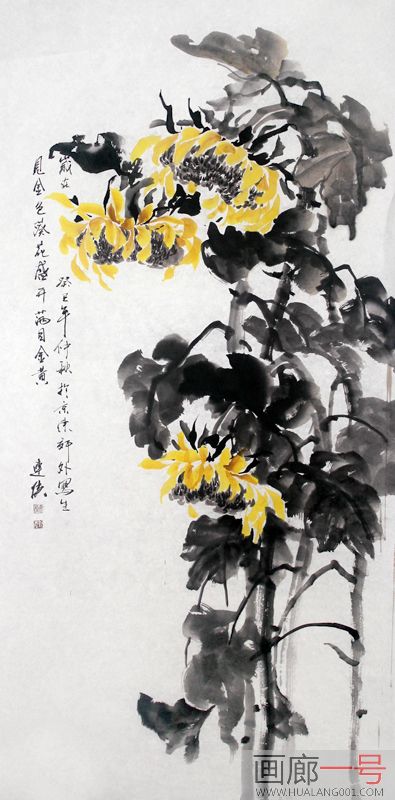 歲在
癸巳年仲秋於京郊外寫生
見金色葵花盛开满目金黄
画廊一号
WWW.HUALANG001.COM